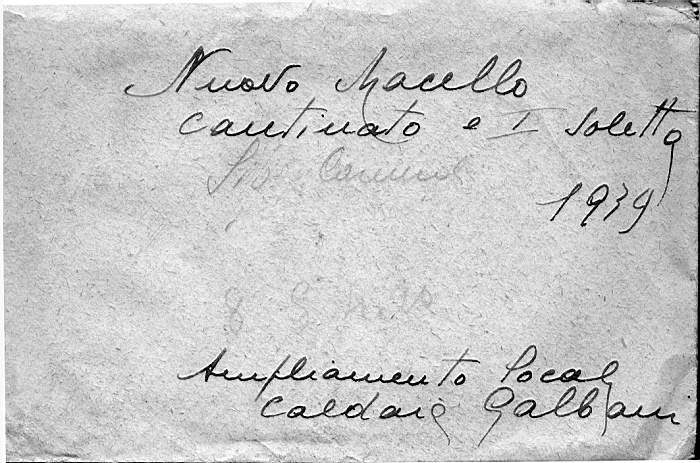 Nuovo Macello
Cantinato e I soletta
1939
Ampliamento Locali
Caldaie Galbani